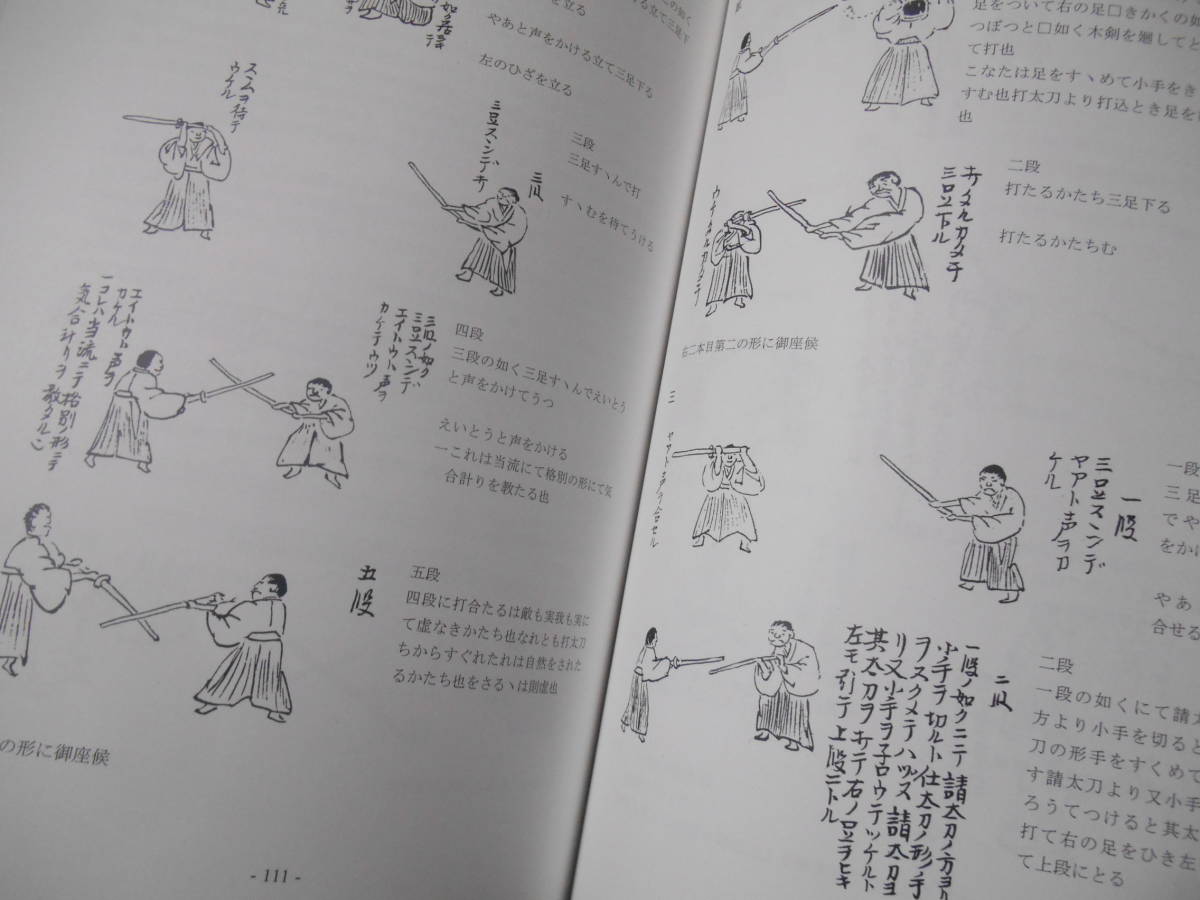 如ク居、
テ
この如く
する立て三足下
を立る
やあと声をかける立て三足下る
左のひざを立る
スヽムヲ待テ
ウケル
三段
三足すヽんで打
すヽむを待てうける
三足スンデ打
三段
四段
三段の如く三足すヽんでえいとう
と声をかけてうつ
えいとうと声をかける
一これは当流にて格別の形にて気
合計りを教たる也
三段ノ如ク
三足スンデ
エイトウト声ヲ
カケテウツ
エイトウト声ヲ
カケル
一コレハ当流ニテ格別ノ形ニテ
気合計リヲ教タル也
五段
五段
四段に打合たるは敵も実我も実に
て虚なきかたち也なれとも打太刀
ちからすぐれたれは自然をされた
るかたち也をさるヽは則虚也
の形に御座候
- 111 -
足をついて右の足□きかくの如
つぼつと□如く木剣を廻してと
て打也
こなたは足をすヽめて小手をき
すむ也打太刀より打込とき足を
也
二段
打たるかたち三足下る
打たるかたちむ
打タルカタチ
三足下ル
右二本目第二の形に御座候
三
ヤアト声ヲ合セル
一段
三足スンデ
ヤアト声ヲカ
ケル
一段
三足
でや
をかけ
やあ
合せる
二段
一段の如くにて請太
方より小手を切ると
刀の形手をすくめて
す請太刀より又小手
ろうてつけると其太
打て右の足をひき左
て上段にとる
二段
一段ノ如クニテ請太刀ノ方ヨリ
小手ヲ切ルト仕太刀ノ形ノ手
ヲスクメテハツス請太刀ヨ
リ又小手ヲ子ロウテツケルト
其太刀ヲ打テ右ノ足ヲヒキ
左モ引テ上段ニトル